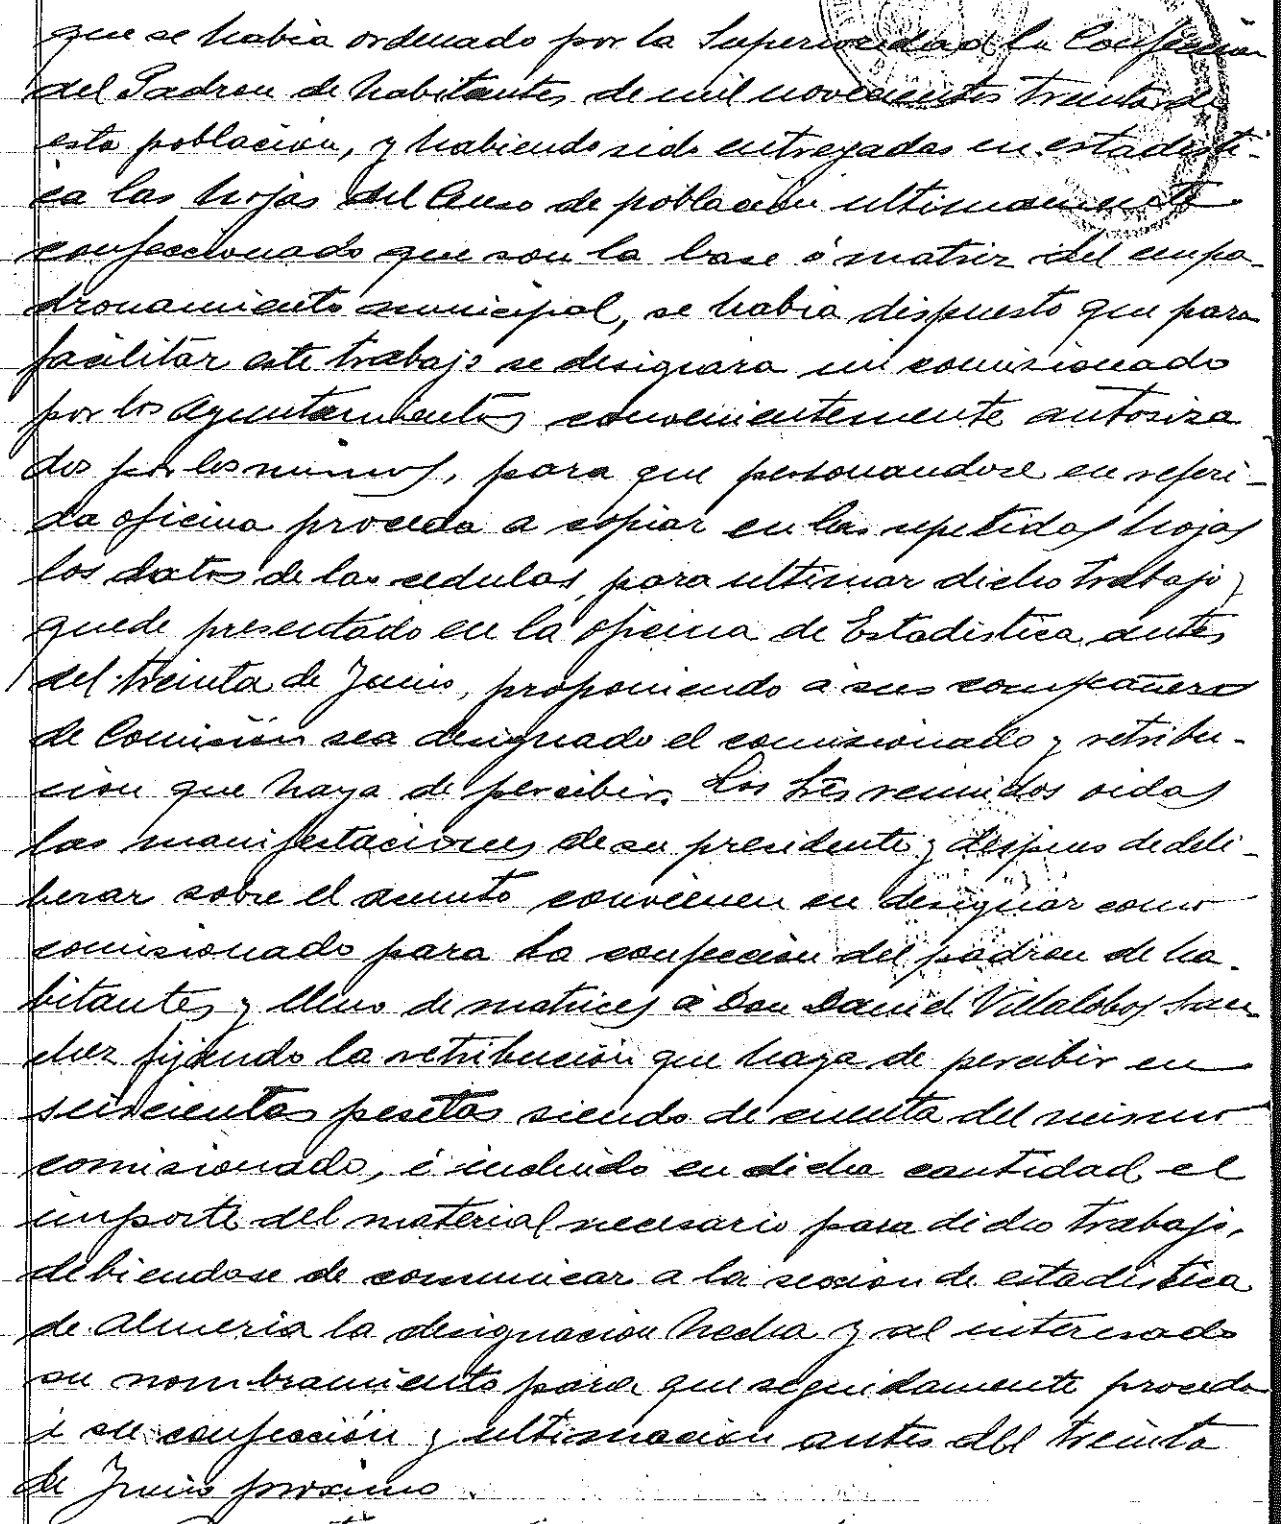 que se habia ordenado por la Superioridad la Confección
del Padron de habitantes de mil novecientos treinta de
esta población, y habiendo sido entregadas en estadisti-
ca las hojas del Censo de población ultimamente
confeccionado que son la base ó matriz del empa-
dronamiento municipal, se habia dispuesto que para
facilitar este trabajo se designara un comisionado
por los Ayuntamientos convenientemente autoriza
dos por los mismos, para que personandose en referi-
da oficina proceda a copiar en las repetidas hojas
los datos de las cedulas, para ultimar dicho trabajo y
quede presentado en la oficina de Estadistica antes
del treinta de Junio, proponiendo á sus compañeros
de Comisión sea designado el comisionado y retribu-
cion que haya de percibir. Los tres reunidos oidas
las manifestaciones de su presidente y despues de deli-
berar sobre el asunto convienen en designar como
comisionado para la confección del padron de ha-
bitantes y lleno de matrices á Don Daniel Villalobos San
chez fijando la retribución que haya de percibir en
seiscientas pesetas siendo de cuenta del mismo
comisionado, é incluido en dicha cantidad el
importe del material necesario para dicho trabajo,
debiendose de comunicar a la seccion de estadistica
de Almeria la designacion hecha y al interesado
su nombramiento para que seguidamente proceda
á su confección y ultimacion antes del treinta
de Junio proximo